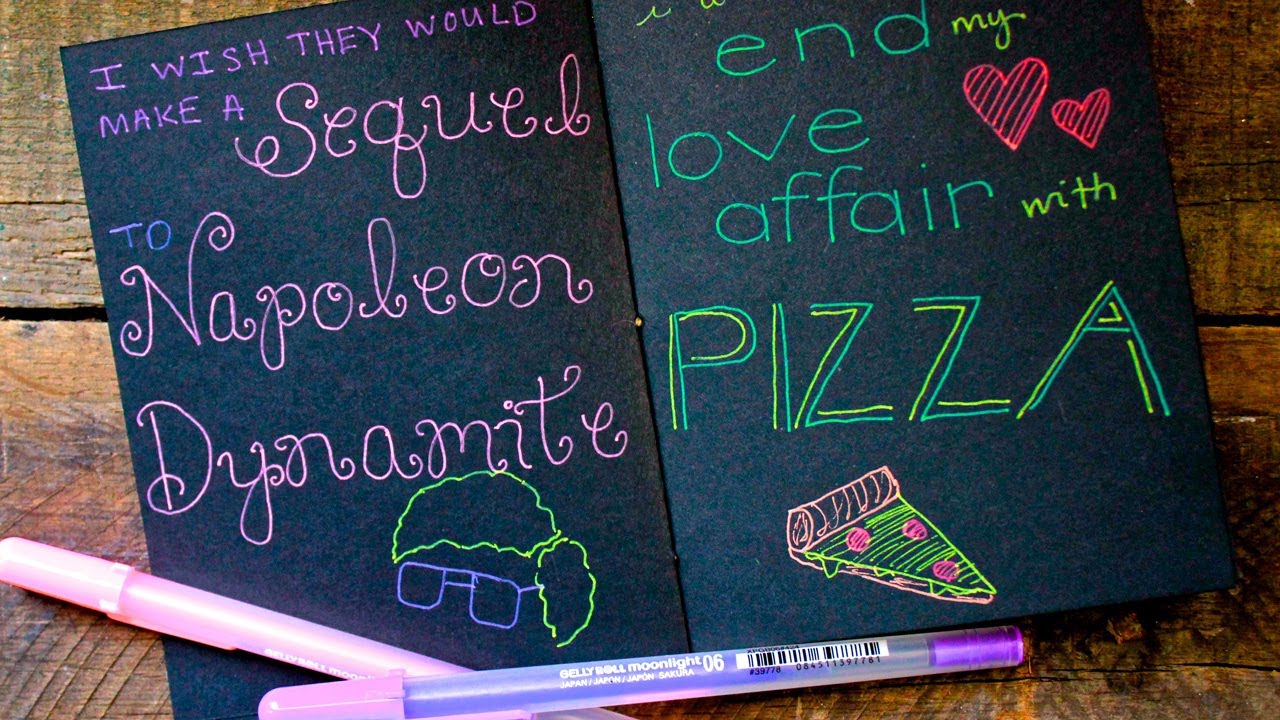 I WISH THEY WOULD
MAKE A Sequel
TO
Napoleon
Dynamite
end my
love
affair with
PIZZA
GELLY ROLL moonlight 06
JAPAN / JAPON / JAPÓN SAKURA
#39778
084511397781
GELLY ROLL moonlight